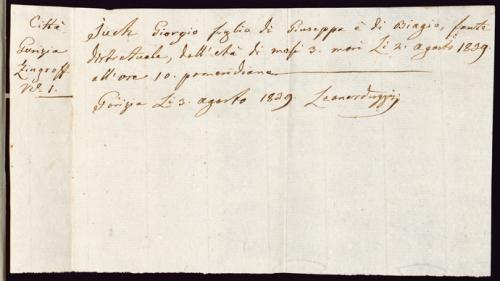 Città
Gorizia
Zingroff
No. 1.
Juch Giorgio foglia di Giuseppa è di Biagio, fante
distrettuale, dell'età di mesi 3. morì Li 2. agosto 1839
all'ore 10. pomeridiane
Gorizia Li 3. agosto 1839. Leonarduzzi